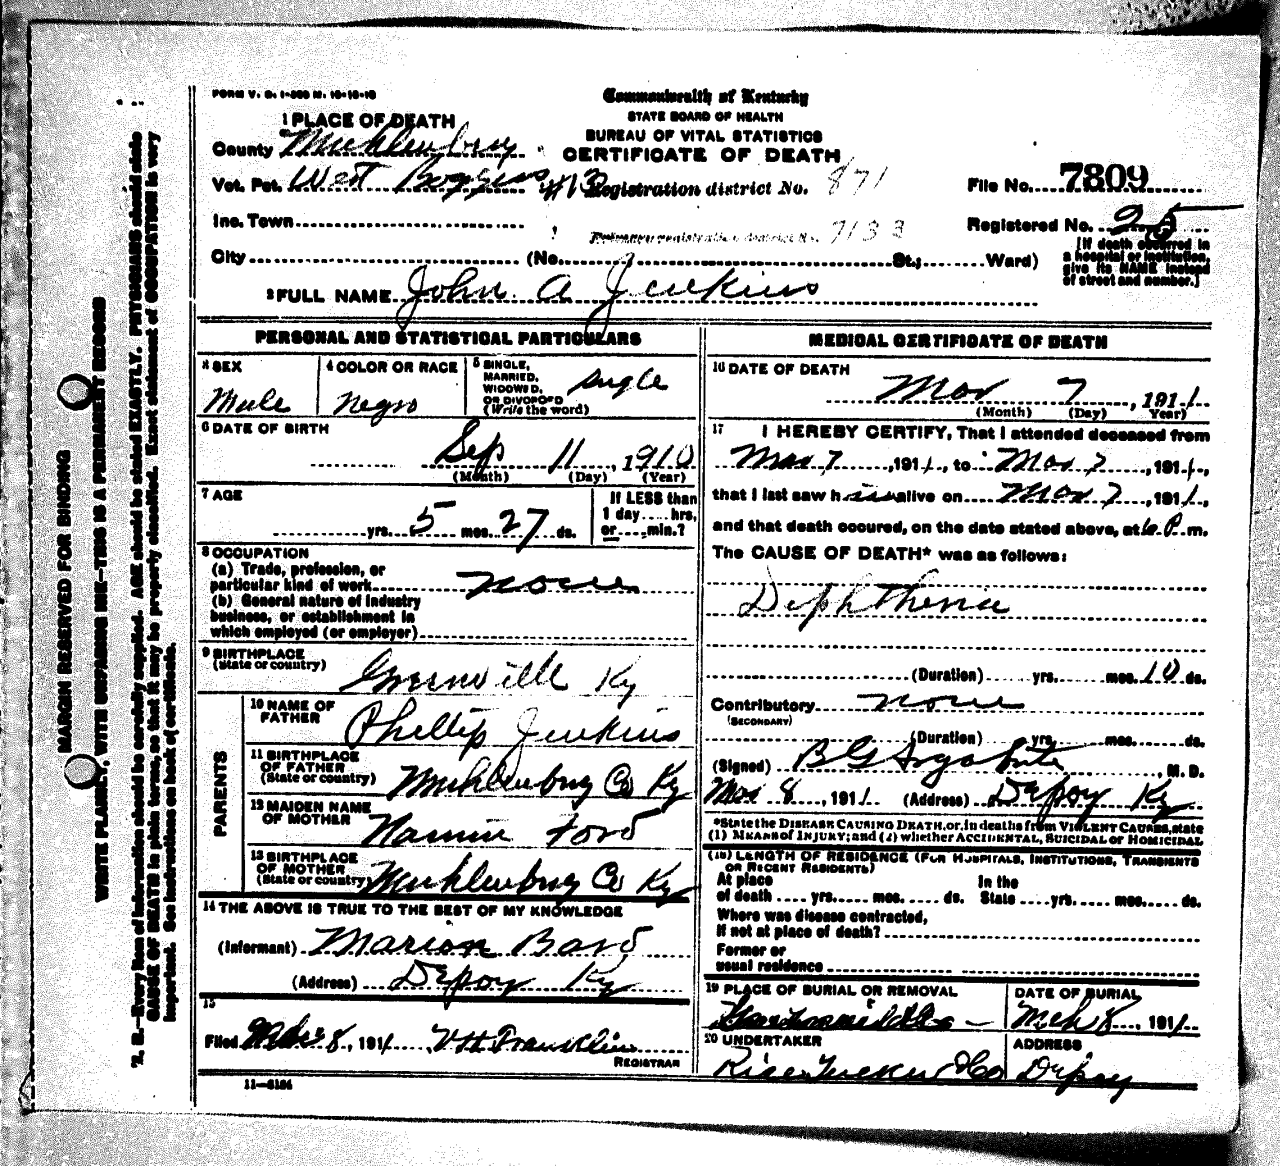 FORM V. S. 1-500 M. 10-10-10
Commonwealth of Kentucky
STATE BOARD OF HEALTH
BUREAU OF VITAL STATISTICS
CERTIFICATE OF DEATH
1 PLACE OF DEATH
County Muhlenburg
Vot. Pct. West Boggess #13 Registration district No. 871
File No. 7809
Inc. Town
Primary registration district No. 7133
Registered No. 25
City (No. St.; Ward)
[If death occurred in
a hospital or institution,
give its NAME instead
of street and number.]
2 FULL NAME John A Jenkins
PERSONAL AND STATISTICAL PARTICULARS
3 SEX Male
4 COLOR OR RACE Negro
5 SINGLE,
MARRIED,
WIDOWED,
OR DIVORCED
(Write the word) Single
6 DATE OF BIRTH
Sep 11, 1910
(Month) (Day) (Year)
7 AGE
yrs. 5 mos. 27 ds.
If LESS than
1 day.....hrs.
or.....min.?
8 OCCUPATION
(a) Trade, profession, or
particular kind of work None
(b) General nature of Industry
business, or establishment in
which employed (or employer)
9 BIRTHPLACE
(State or country) Greenville Ky
PARENTS
10 NAME OF
FATHER Phillip Jenkins
11 BIRTHPLACE
OF FATHER
(State or country) Muhlenburg Co Ky
12 MAIDEN NAME
OF MOTHER Nannie Ford
13 BIRTHPLACE
OF MOTHER
(State or country) Muhlenburg Co Ky
14 THE ABOVE IS TRUE TO THE BEST OF MY KNOWLEDGE
(Informant) Marion Bard
(Address) Depoy Ky
15
Filed Mch 8, 1911 V H Franklin
REGISTRAR
11-5184
MEDICAL CERTIFICATE OF DEATH
16 DATE OF DEATH
Mar 7, 1911
(Month) (Day) (Year)
17 I HEREBY CERTIFY, That I attended deceased from
Mar 7, 1911, to Mar 7, 1911,
that I last saw him alive on Mar 7, 1911,
and that death occured, on the date stated above, at 6 P. m.
The CAUSE OF DEATH* was as follows:
Diphtheria
(Duration) yrs. mos. 10 ds.
Contributory None
(SECONDARY)
(Duration) yrs. mos. ds.
(Signed) B G , M. D.
Mar 8, 1911 (Address) Depoy Ky
*State the DISEASE CAUSING DEATH, or, in deaths from VIOLENT CAUSES, state
(1) MEANS of INJURY; and (2) whether ACCIDENTAL, SUICIDAL or HOMICIDAL
(18) LENGTH OF RESIDENCE (FOR HOSPITALS, INSTITUTIONS, TRANSIENTS
OR RECENT RESIDENTS)
At place In the
of death .... yrs. .... mos. .... ds. State .... yrs. .... mos. .... ds.
Where was disease contracted,
If not at place of death?
Former or
usual residence
19 PLACE OF BURIAL OR REMOVAL
DATE OF BURIAL
Mch 8, 1911
20 UNDERTAKER
Rice Tucker & Co
ADDRESS
Depoy
MARGIN RESERVED FOR BINDING
WRITE PLAINLY, WITH UNFADING INK—THIS IS A PERMANENT RECORD
N. B.—Every item of information should be carefully supplied. AGE should be stated EXACTLY. PHYSICIANS should state
CAUSE OF DEATH in plain terms, so that it may be properly classified. Exact statement of OCCUPATION is very
important. See instructions on back of certificate.